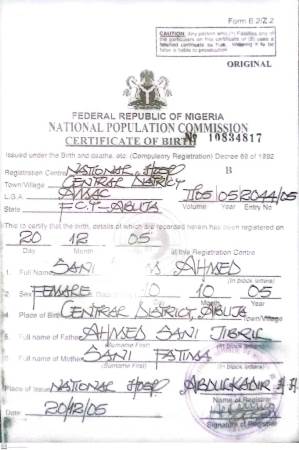 Form B 2/Z 2
CAUTION: Any person who (1) Falsifies any of the particulars on this certificate or (2) uses a falsified certificate as true, knowing it to be false is liable to prosecution
ORIGINAL
FEDERAL REPUBLIC OF NIGERIA
NATIONAL POPULATION COMMISSION
CERTIFICATE OF BIRTH № 10834817
Issued under the Birth and deaths, etc. (Compulsory Registration) Decree 69 of 1992
Registration Centre NATIONAL HOSP B
Town/Village CENTRAL DISTRICT
L.G.A. AMAC 05 2044 05
State F.C.T. ABUJA Volume Year Entry No
This to certify that the birth, details of which are recorded herein has been registered on
20 12 05
Day Month at this Registration Centre
1. Full Name SANI M AHMED
(In block letters)
2. Sex FEMALE 10 10 05
3. Place of Birth CENTRAL DISTRICT, ABUJA
Town/Village
4. Full name of Father AHMED SANI JIBRIL
(Surname First) (In block letters)
5. Full name of Mother SANI FATIMA
(Surname First) (In block letters)
Place of Issue NATIONAL HOSP ABDULKADIR
Name of Registrar
Date 20/12/05